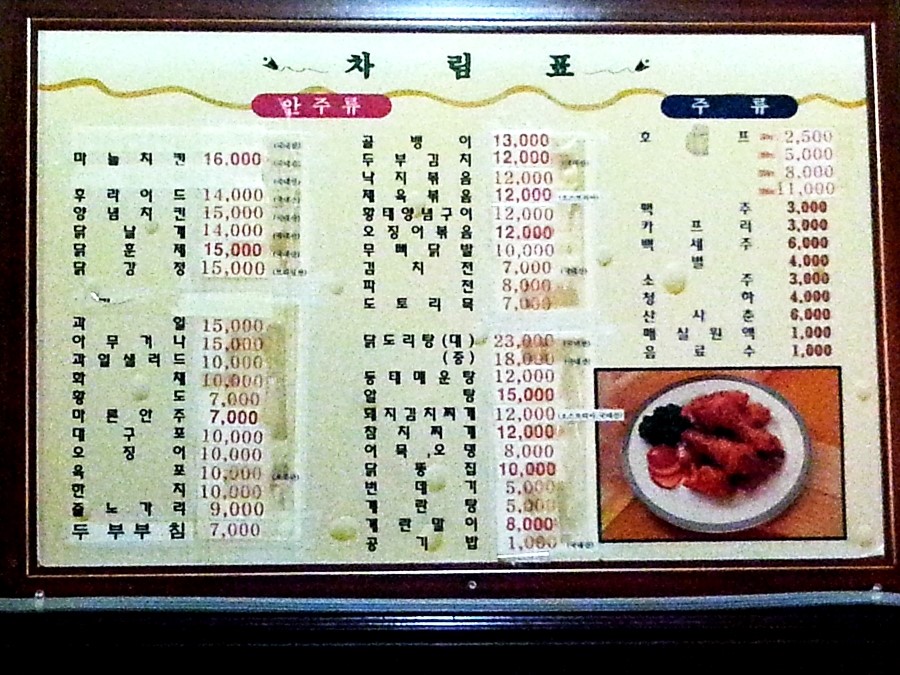 차림표
안주류
마늘치킨 16,000
후라이드 14,000
양념치킨 15,000
닭날개 14,000
닭훈제 15,000
닭강정 15,000
과일 15,000
아무거나 15,000
과일샐러드 10,000
화채 10,000
황도 7,000
마른안주 7,000
대구포 10,000
오징어 10,000
육포 10,000
한치 10,000
줄노가리 9,000
두부부침 7,000
골뱅이 13,000
두부김치 12,000
낙지볶음 12,000
제육볶음 12,000
황태양념구이 12,000
오징어볶음 12,000
무뼈닭발 10,000
김치전 7,000
파전 8,000
도토리묵 7,000
닭도리탕(대) 23,000
(중) 18,000
동태매운탕 12,000
알탕 15,000
돼지김치찌개 12,000
참치찌개 12,000
어묵,오뎅 8,000
닭똥집 10,000
번데기 5,000
계란탕 5,000
계란말이 8,000
공기밥 1,000
주류
호프 2,500
5,000
8,000
11,000
맥주 3,000
카프리 3,000
백세주 6,000
별 4,000
소주 3,000
청하 4,000
산사춘 6,000
매실원액 1,000
음료수 1,000